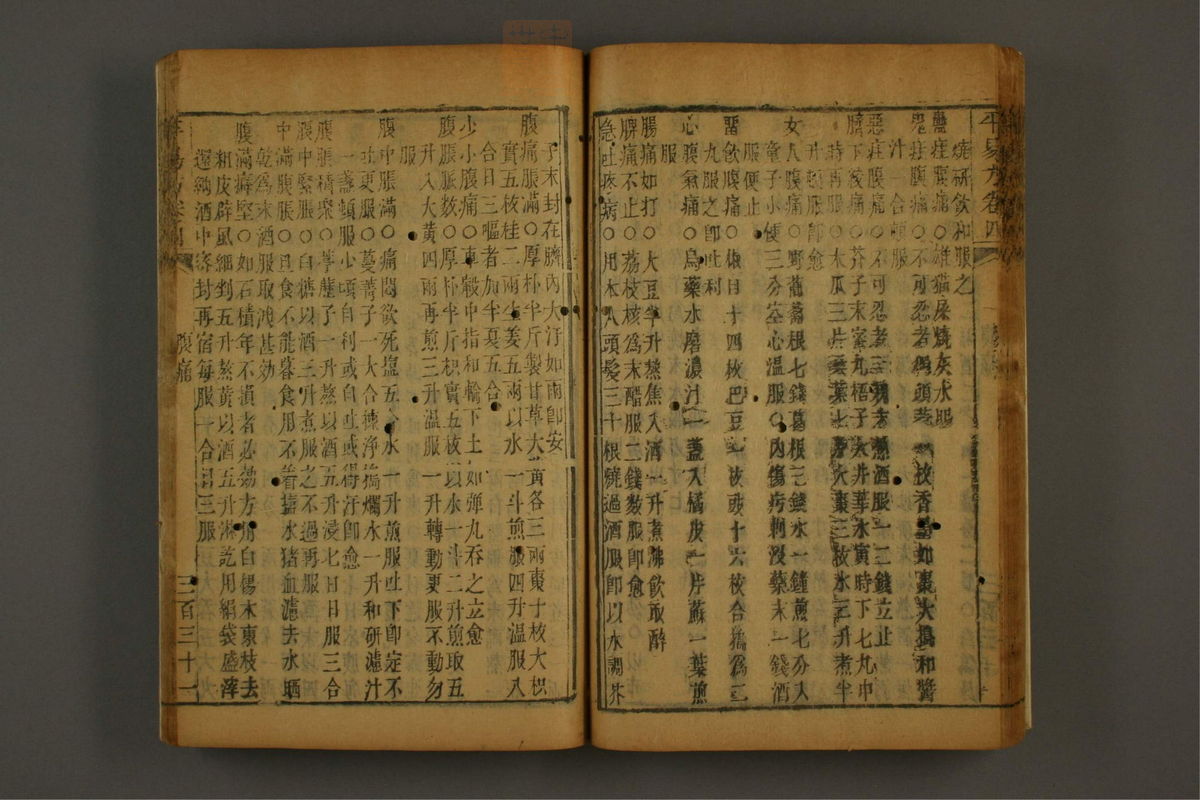 平易方卷四
蠱疰腹痛○雄猫屎燒灰水服
燒研飲和服之
鬼疰腹痛○不可忍者獨頭蒜一枚香墨如棗大搗和醬
汁一合頓服
惡疰腹痛○不可忍者三䄂末熱酒服一二錢立止
臍下絞痛○木瓜三片桑葉七片大棗三枚水三升煮半
女人腹痛○野薔薇根七錢葛根三錢水一鐘煎七分入
童子小便三分空心溫服○內傷疞刺沒藥末一錢酒
服便止
留飲腹痛○椒目十四枚巴豆一枚豉十六枚合搗爲二
丸服之卽吐利
心腹氣痛○烏藥水磨濃汁一盞入橘皮一片蘇一葉煎
服
腸痛如打○大豆半升熬焦入酒一升煮沸飲取醉
脾痛不止○荔枝核爲末醋服二錢數服卽愈
急吐疼病○用本人頭髮三十根燒過酒服卽以水調芥
子末封在臍內大汗如雨卽安
腹痛脹滿○厚朴半斤製甘草大黃各三兩棗十枚大枳
實五枚桂二兩生姜五兩以水一斗煎服四升溫服八
合日三嘔者加半夏五合
少小腹痛○車轂中指和輪下土如彈丸吞之立愈
腹脹脈數○厚朴半斤枳實五枚以水一斗二升煎取五
升入大黃四兩再煎三升溫服一升轉動更服不動勿
服
腹中脹滿○痛悶欲死塩五合水一升煎服吐下卽定不
吐更服○蔓菁子一大合揀淨搗爛水一升和研濾汁
一盞頓服少頃自利或自吐或得汗卽愈
腹脹積聚○葶藶子一升熬以酒五升浸七日日服三合
脹中緊脹○白糖以酒三升煮服之不過再服
中滿腹脹○旦食不能暮食用不着塩水猪血濾去水晒
乾爲末酒服取㵼甚効
腹滿癖堅○如石積年不損者必効方用白楊木東枝去
和皮辟風細剉五升熬黃以酒五升淋訖用絹袋盛滓
還納酒中密封再宿每服一合日三服
平易方卷四
腹痛
三百三十一